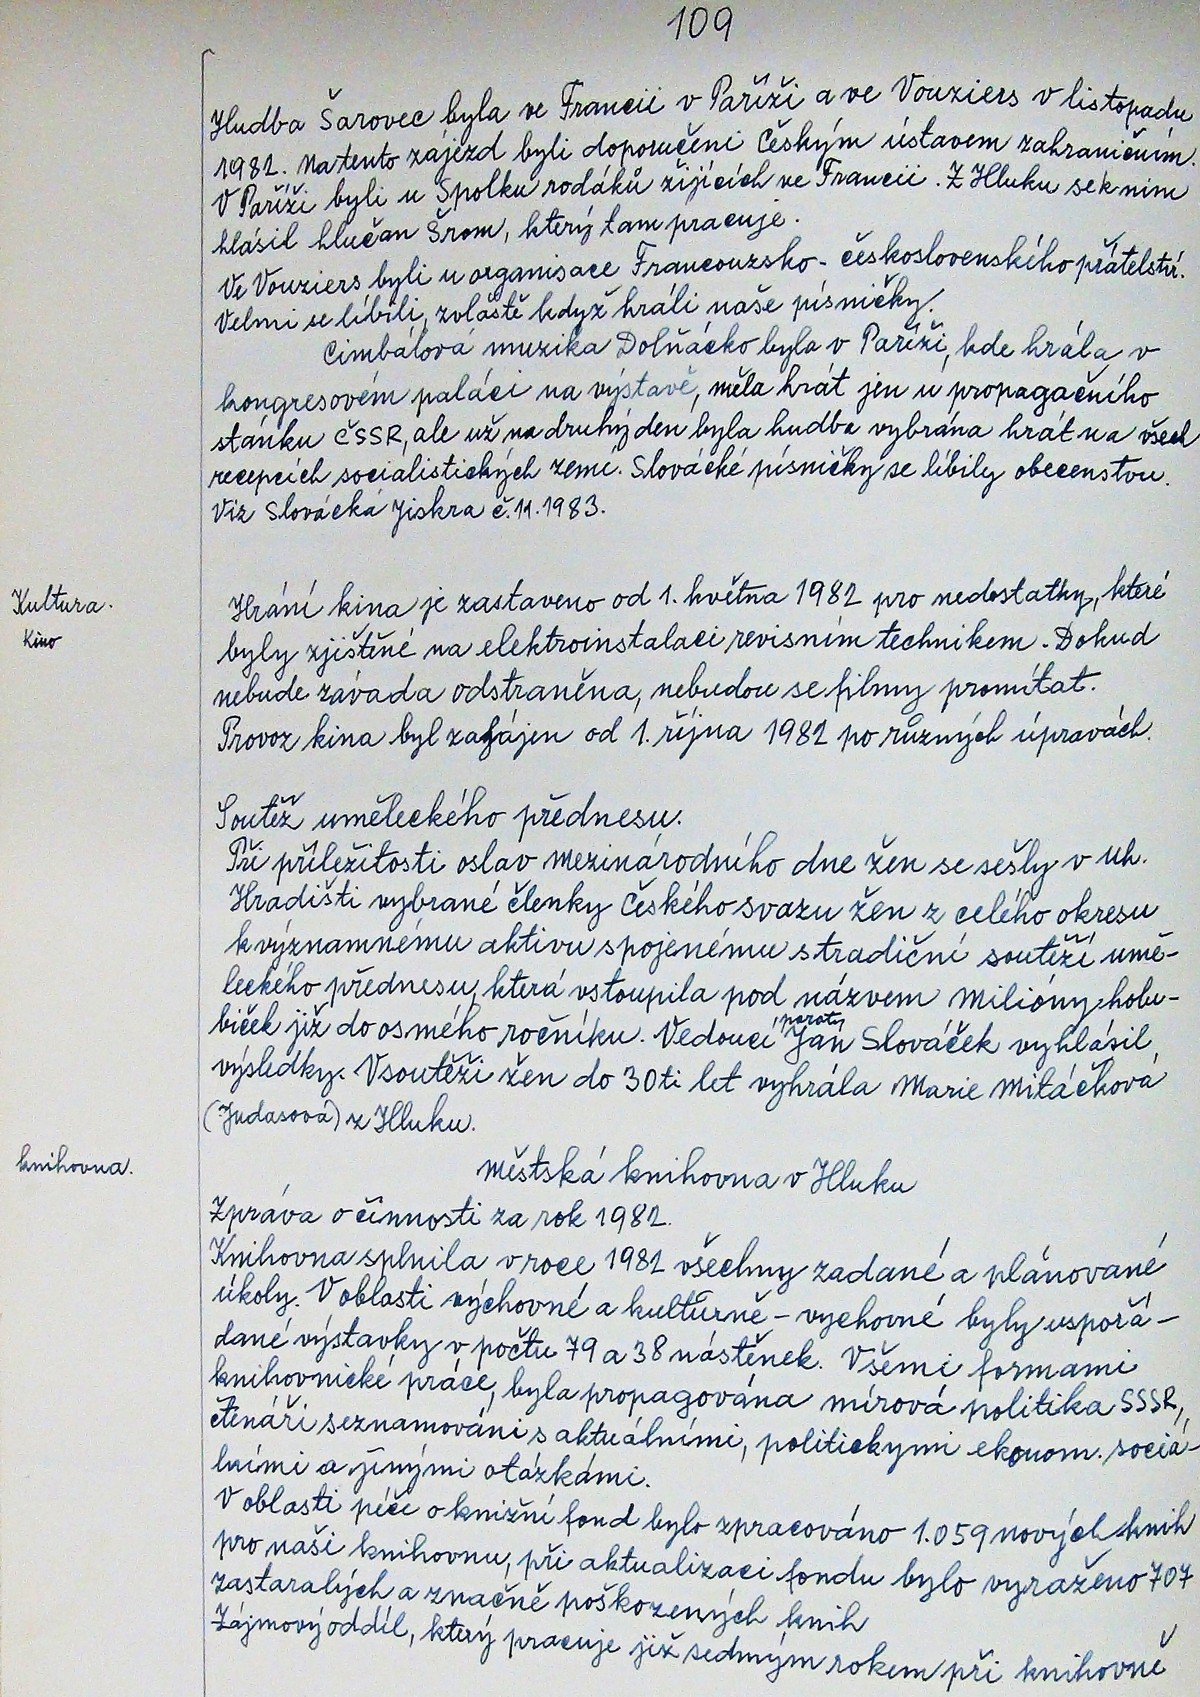 109
Hudba Šarovec byla ve Francii v Paříži a ve Vouziers v listopadu
1982. Na tento zájezd byli doporučeni Českým ústavem zahraničním.
V Paříži byli u Spolku rodáků žijících ve Francii. Z Hluku se k nim
hlásil hlučan Šrom, který tam pracuje.
Ve Vouziers byli u organisace Francouzsko - československého přátelství.
Velmi se líbili, zvláště když hráli naše písničky.
Cimbálová muzika Dolňácko byla v Paříži, kde hrála v
kongresovém paláci na výstavě, měla hrát jen u propagačního
stánku ČSSR, ale už na druhý den byla hudba vybrána hrát na všech
recepcích socialistických zemí. Slovácké písničky se líbily obecenstvu.
Viz Slovácká Jiskra č. 11. 1983.
Kultura.
Kino
Hraní kina je zastaveno od 1. května 1982 pro nedostatky, které
byly zjištěné na elektroinstalaci revisním technikem. Dokud
nebude závada odstraněna, nebudou se filmy promítat.
Provoz kina byl zahájen od 1. října 1982 po různých úpravách.
Soutěž uměleckého přednesu.
Při příležitosti oslav mezinárodního dne žen se sešly v Uh.
Hradišti vybrané členky Českého svazu žen z celého okresu
k významnému aktivu spojenému s tradiční soutěží umě-
leckého přednesu, která vstoupila pod názvem Milióny holu-
biček již do osmého ročníku. Vedoucí poroty Jan Slováček vyhlásil
výsledky. V soutěži žen do 30ti let vyhrála Marie Mitáčková
(Judasová) z Hluku.
knihovna.
Městská knihovna v Hluku
Zpráva o činnosti za rok 1982.
Knihovna splnila v roce 1982 všechny zadané a plánované
úkoly. V oblasti výchovné a kulturně - vychovné byly uspořá-
dané výstavky v počtu 79 a 38 nástěnek. Všemi formami
knihovnické práce, byla propagována mírová politika SSSR,
čtenáři seznamováni s aktuálními, politickymi ekonom. sociá-
lními a jinými otázkámi.
V oblasti péče o knižní fond bylo zpracováno 1.059 nových knih
pro naši knihovnu, při aktualizaci fondu bylo vyraženo 707
zastaralých a značně poškozených knih
Zájmový oddíl, který pracuje již sedmým rokem při knihovně